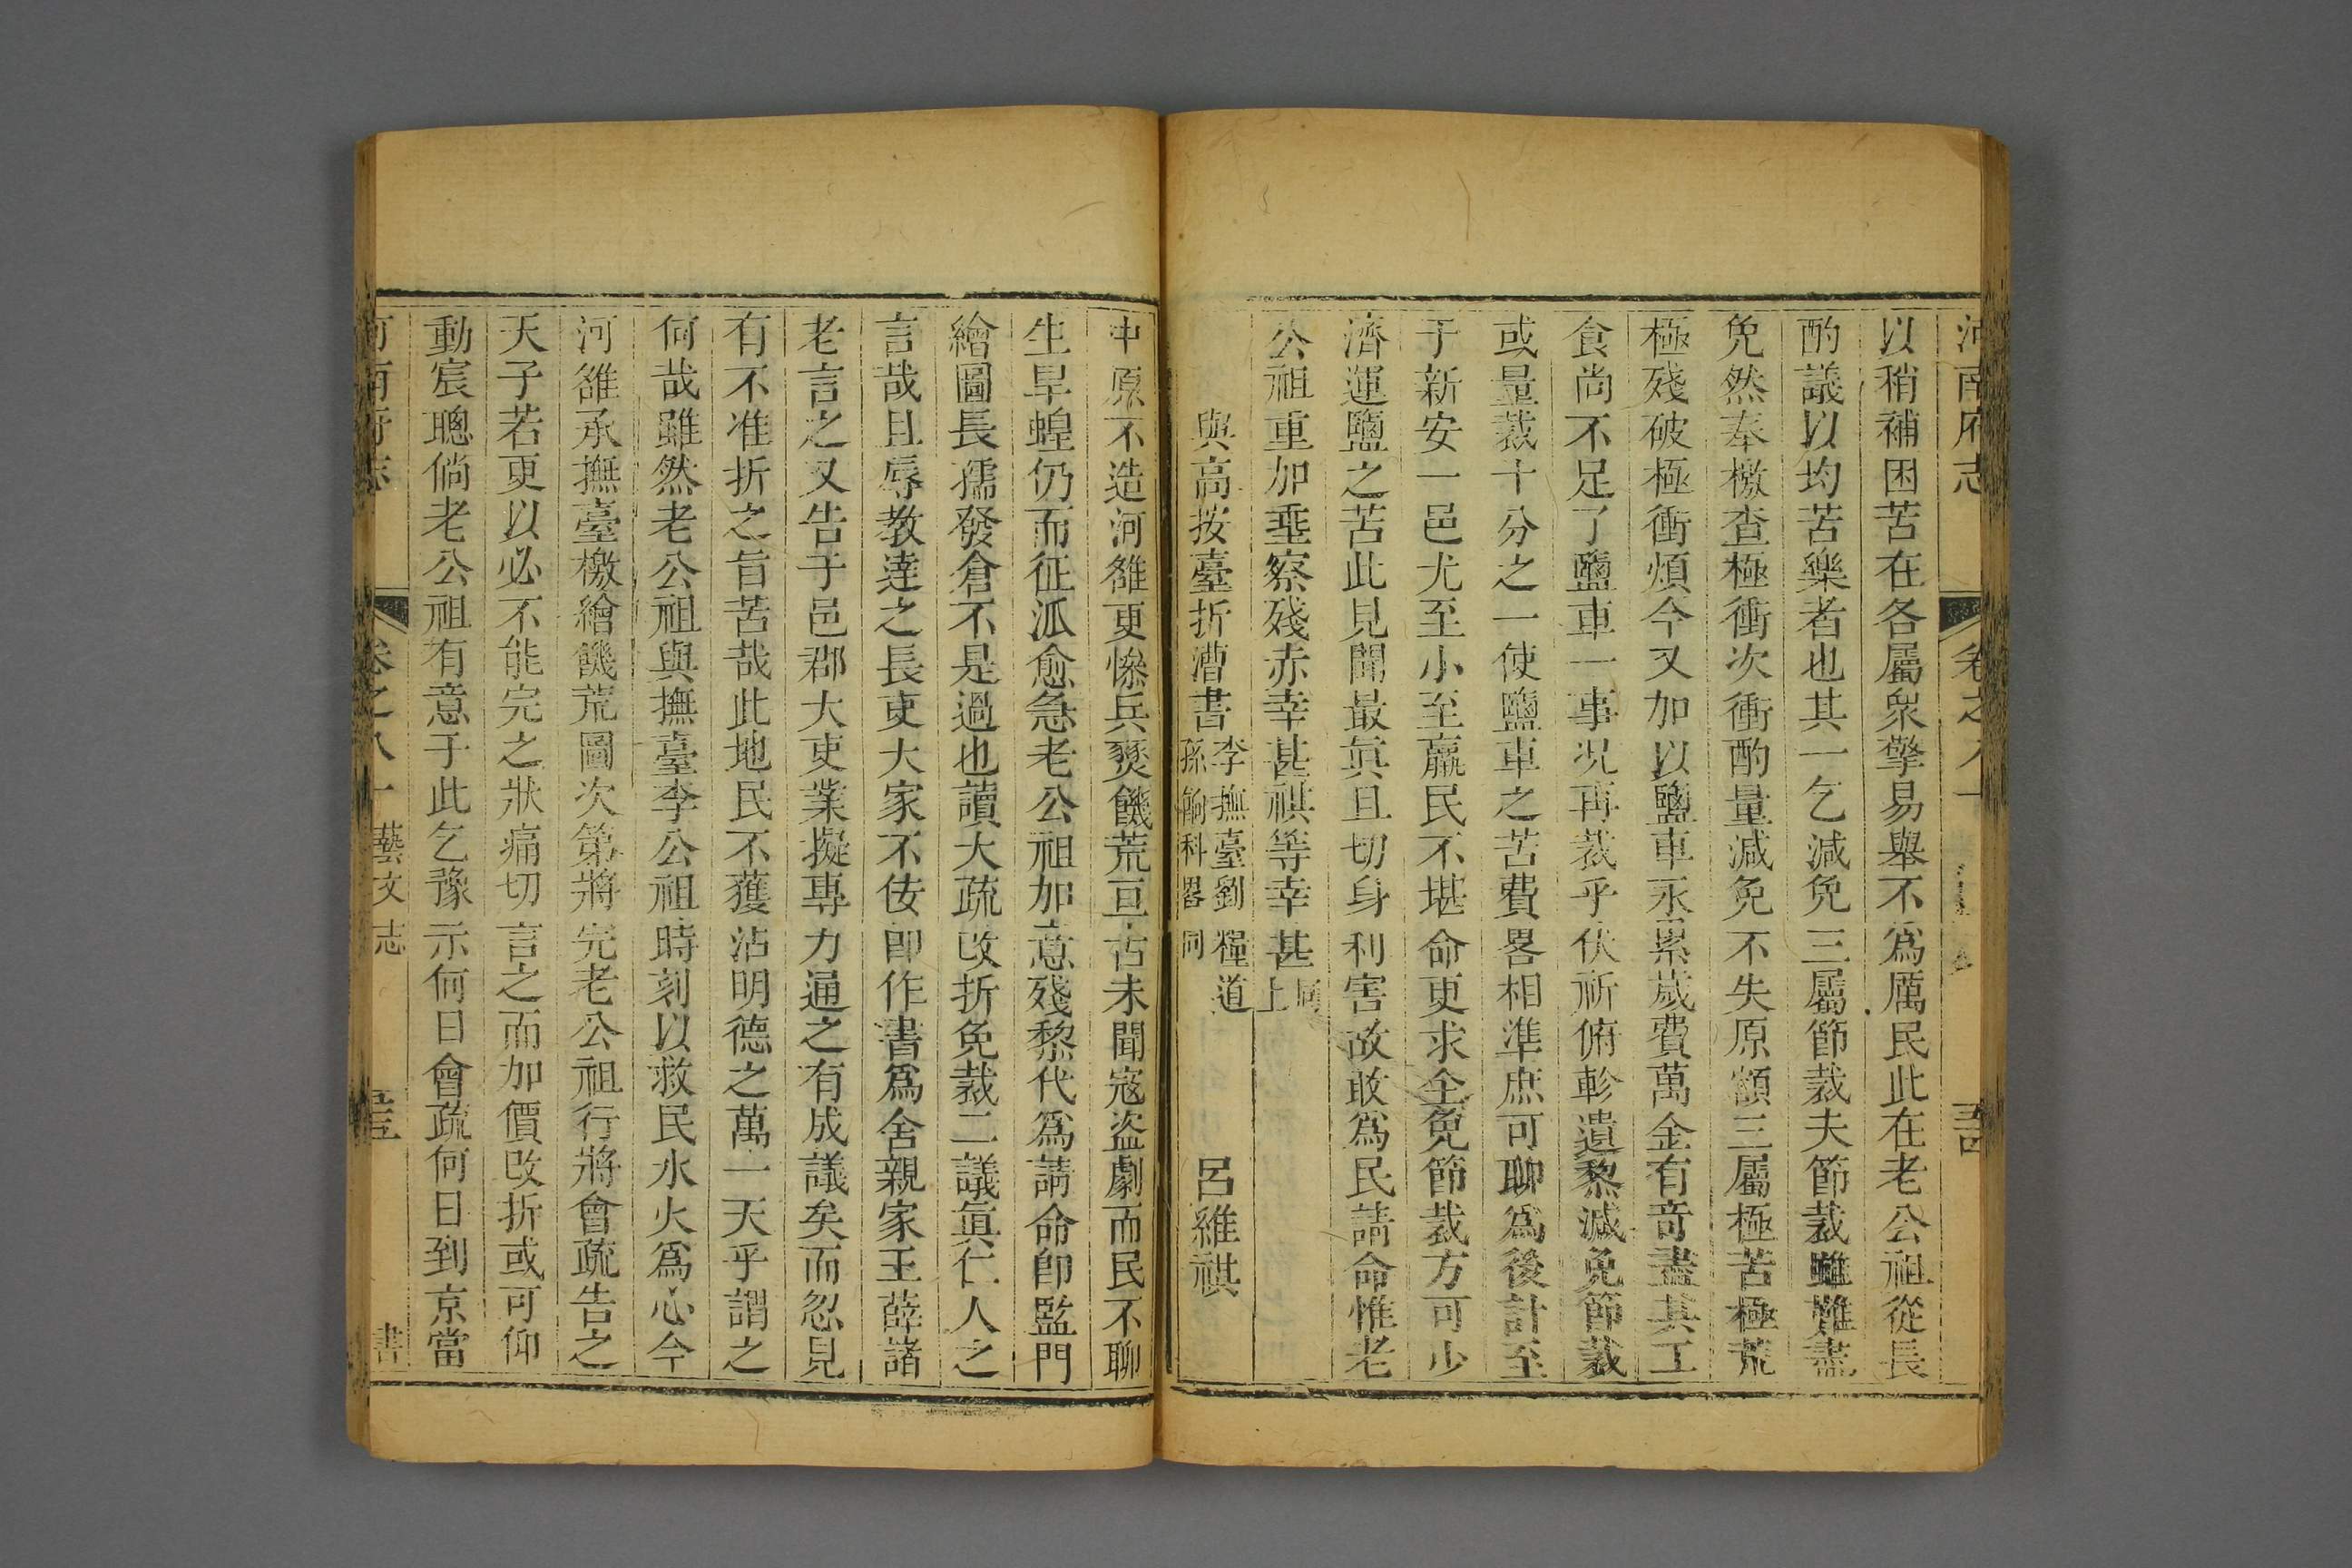 河南府志 卷之八十
以稍補困苦在各屬衆擎易舉不爲厲民此在老公祖從長
酌議以均苦樂者也其一乞減免三屬節裁夫節裁雖難盡
免然奉檄查極衝次衝酌量減免不失原額三屬極苦極荒
極殘破極衝煩今又加以鹽車永累歲費萬金有奇盡其工
食尚不足了鹽車一事况再裁乎伏祈俯軫遺黎減免節裁
或量裁十分之一使鹽車之苦費畧相準庶可聊爲後計至
于新安一邑尤至小至羸民不堪命更求全免節裁方可少
濟運鹽之苦此見聞最眞且切身利害故敢爲民請命惟老
公祖重加垂察殘赤幸甚祺等幸甚
與高按臺折漕書 李撫臺劉糧道 孫餉科畧同 呂維祺
中原不造河雒更慘兵燹饑荒亘古未聞寇盜劇而民不聊
生旱蝗仍而征派愈急老公祖加意殘黎代爲請命卽監門
繪圖長孺發倉不是過也讀大疏改折免裁二議眞仁人之
言哉且辱教逹之長吏大家不佞卽作書爲舍親家王薛諸
老言之又告于邑郡大吏業擬專力通之有成議矣而忽見
有不准折之旨苦哉此地民不獲沾明德之萬一天乎謂之
何哉雖然老公祖與撫臺李公祖時刻以救民水火爲心今
河雒承撫臺檄繪饑荒圖次第將完老公祖行將會疏告之
天子若更以必不能完之狀痛切言之而加價改折或可仰
動宸聰倘老公祖有意于此乞豫示何日會疏何日到京當
河南府志 卷之八十藝文志 書